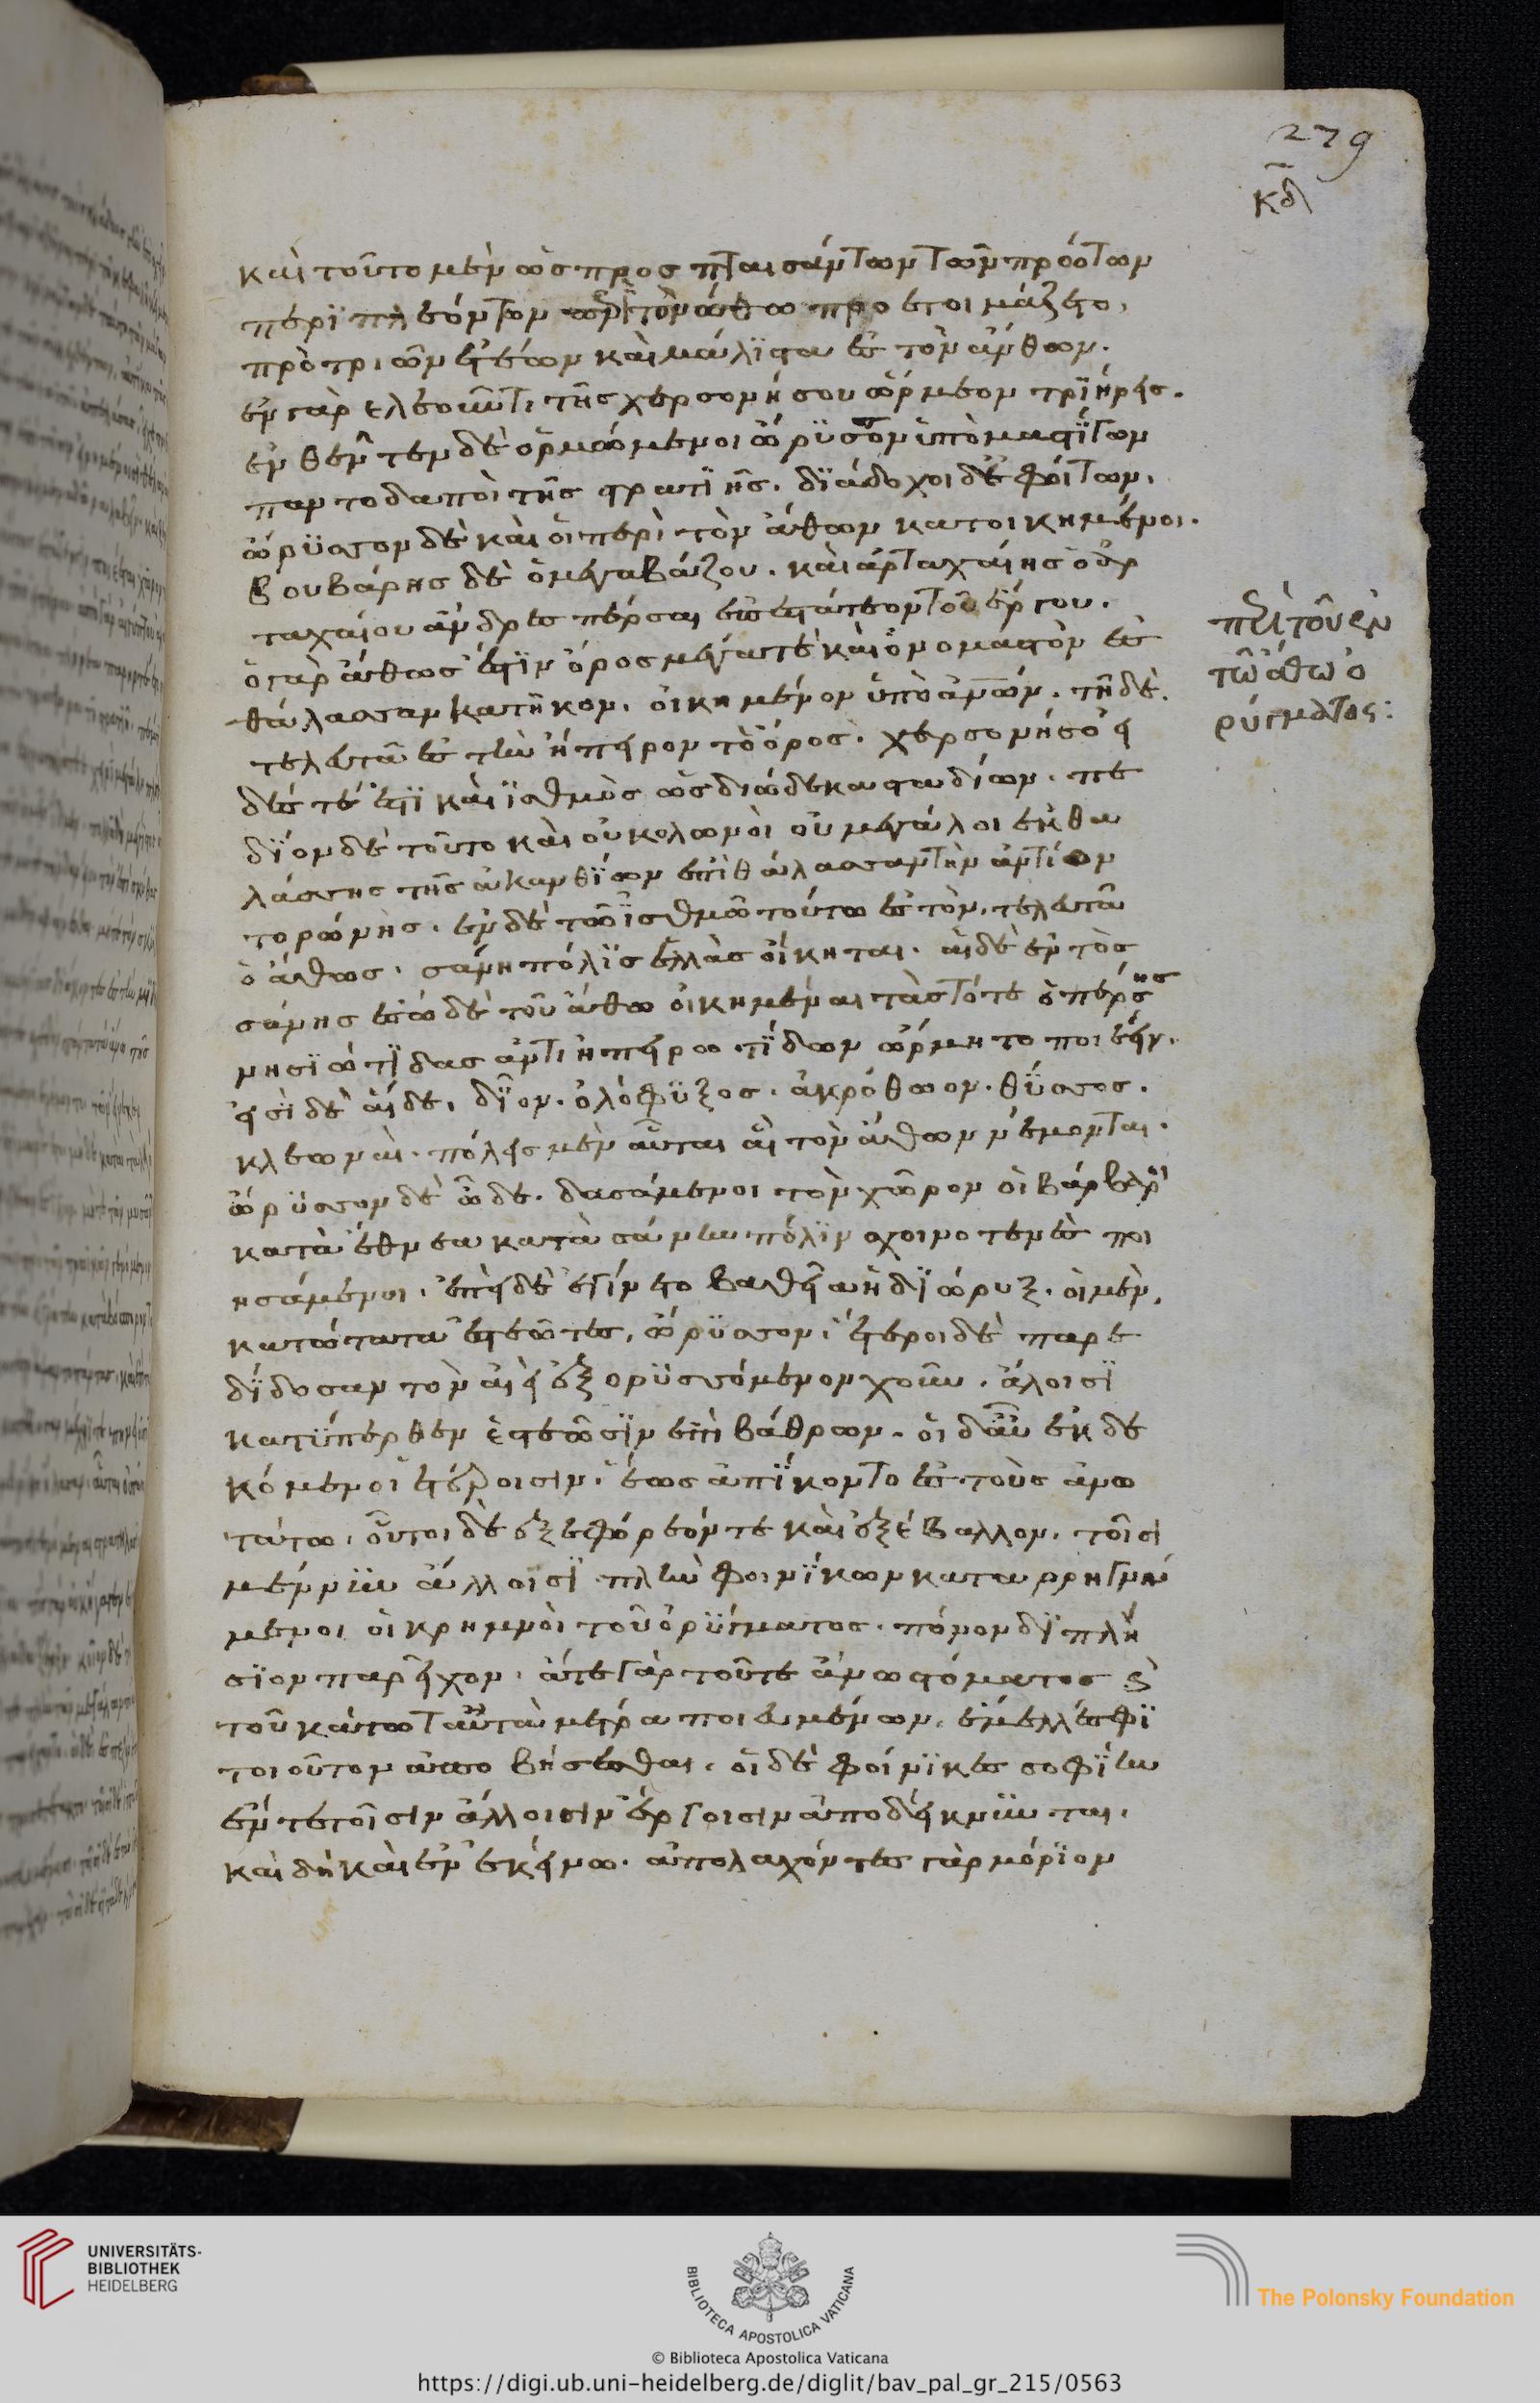 279
κδ
καὶ τοῦτο μὲν ὡς προσπταισάντων τῶν πρώτων
περιπλεόντων περὶ τὸν ἄθω προετοιμάζετο.
πρὸ τριῶν ἐτέων καὶ μάλιστα ἐς τὸν ἄθων.
ἐν γὰρ ἐλεοῦντι τῆς χερσονήσου ὥρμεον τριήρεις.
ἐνθεῦτεν δὲ ὁρμεώμενοι ὤρυσσον ὑπὸ μαστίγων
παντοδαποὶ τῆς στρατιῆς. διάδοχοι δὲ φοίτων.
ὤρυσσον δὲ καὶ οἱ περὶ τὸν ἄθων κατοικημένοι.
βουβάρης δὲ ὁ μεγαβάζου. καὶ ἀρταχαίης ὁ ἀρ
ταχαίου ἄνδρες πέρσαι ἐπεστάτεον τοῦ ἔργου.
ὁ γὰρ ἄθως ἐστὶν ὄρος μέγα τε καὶ ὀνομαστὸν ἐς
θάλασσαν κατῆκον. οἰκημένον ὑπὸ ἀνθρώπων. τῇ δὲ
τελευτᾶ ἐς τὴν ἤπειρον τὸ ὄρος. χερσονησοει
δές τέ ἐστι καὶ ἰσθμὸς ὡς δυώδεκα σταδίων. πε
δίον δὲ τοῦτο καὶ οὐ κολωνοὶ οὐ μεγάλοι ἐκ θα
λάσσης τῆς ἀκανθίων ἐπὶ θάλασσαν τὴν ἀντίον
τορώνης. ἐν δὲ τῶ ἰσθμῶ τούτω ἐς τὸν τελευτᾶ
ὁ ἄθως. σάνη πόλις ἑλλὰς οἴκηται. αἱ δὲ ἐντὸς
σάνης ἔσω δὲ τοῦ ἄθω οἰκημέναι τὰς τότε ὁ πέρσης
νησιώτιδας ἀντὶ ἠπειρωτίδων ὥρμητο ποιέειν.
εἰσὶ δὲ αἵδε. δῖον. ὀλόφυξος. ἀκρόθωον. θύσσος.
κλεωναί. πόλεις μὲν αὗται αἳ τὸν ἄθων νέμονται.
ὤρυσσον δὲ ὧδε. δασάμενοι τὸν χῶρον οἱ βάρβαροι
κατὰ ἔθνεα κατὰ σάνην πόλιν σχοινοτενὲς ποι
ησάμενοι. ἐπεὶ δὲ ἐγίνετο βαθέα ἡ διῶρυξ. οἱ μὲν
κατώτατα ἑστεῶτες, ὤρυσσον. ἕτεροι δὲ παρε
δίδοσαν τὸν αἰεὶ ἐξορυσσόμενον χοῦν. ἄλοισι
κατύπερθεν ἑστεῶσιν ἐπὶ βάθρων. οἱ δ' αὖ ἐκδε
κόμενοι ἑτέροισιν. ἕως ἀπίκοντο ἐς τοὺς ἀνω
τάτω. οὗτοι δὲ ἐξεφόρεόν τε καὶ ἐξέβαλλον. τοῖσι
μέν νυν ἄλλοισι πλὴν φοινίκων καταρρηγνύ
μενοι οἱ κρημνοὶ τοῦ ὀρύγματος. πόνον διπλή
σιον παρεῖχον. ἅτε γὰρ τοῦ τε ἄνω στόματος καὶ
τοῦ κάτω ταὐτὰ μέτρα ποιευμένων. ἔμελλέ σφι
τοιοῦτον ἀποβήσεσθαι. οἱ δὲ φοίνικες σοφίην
ἔν τε τοῖσιν ἄλλοισιν ἔργοισιν ἀποδείκνυνται.
καὶ δὴ καὶ ἐν ἐκείνω. ἀπολαχόντες γὰρ μόριον
περὶ τοῦ ἐν
τῶ ἄθω ὀ
ρύγματος:
UNIVERSITÄTS-
BIBLIOTHEK
HEIDELBERG
BIBLIOTECA APOSTOLICA VATICANA
© Biblioteca Apostolica Vaticana
The Polonsky Foundation
https://digi.ub.uni-heidelberg.de/diglit/bav_pal_gr_215/0563